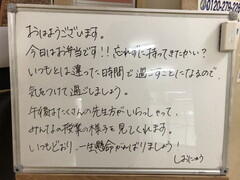 0120-279-22
おはようございます。
今日はお弁当です!!忘れずに持ってきたかい?
いつもとは違った時間で過ごすことになるので、
気をつけて過ごしましょう。
午後はたくさんの先生方がいらっしゃって、
みんなの授業の様子を見てくれます。
いつもどおり、一生懸命がんばりましょう!